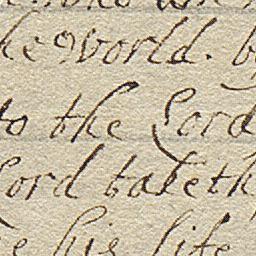 the world. b
to the Lord
Lord taketh
his life